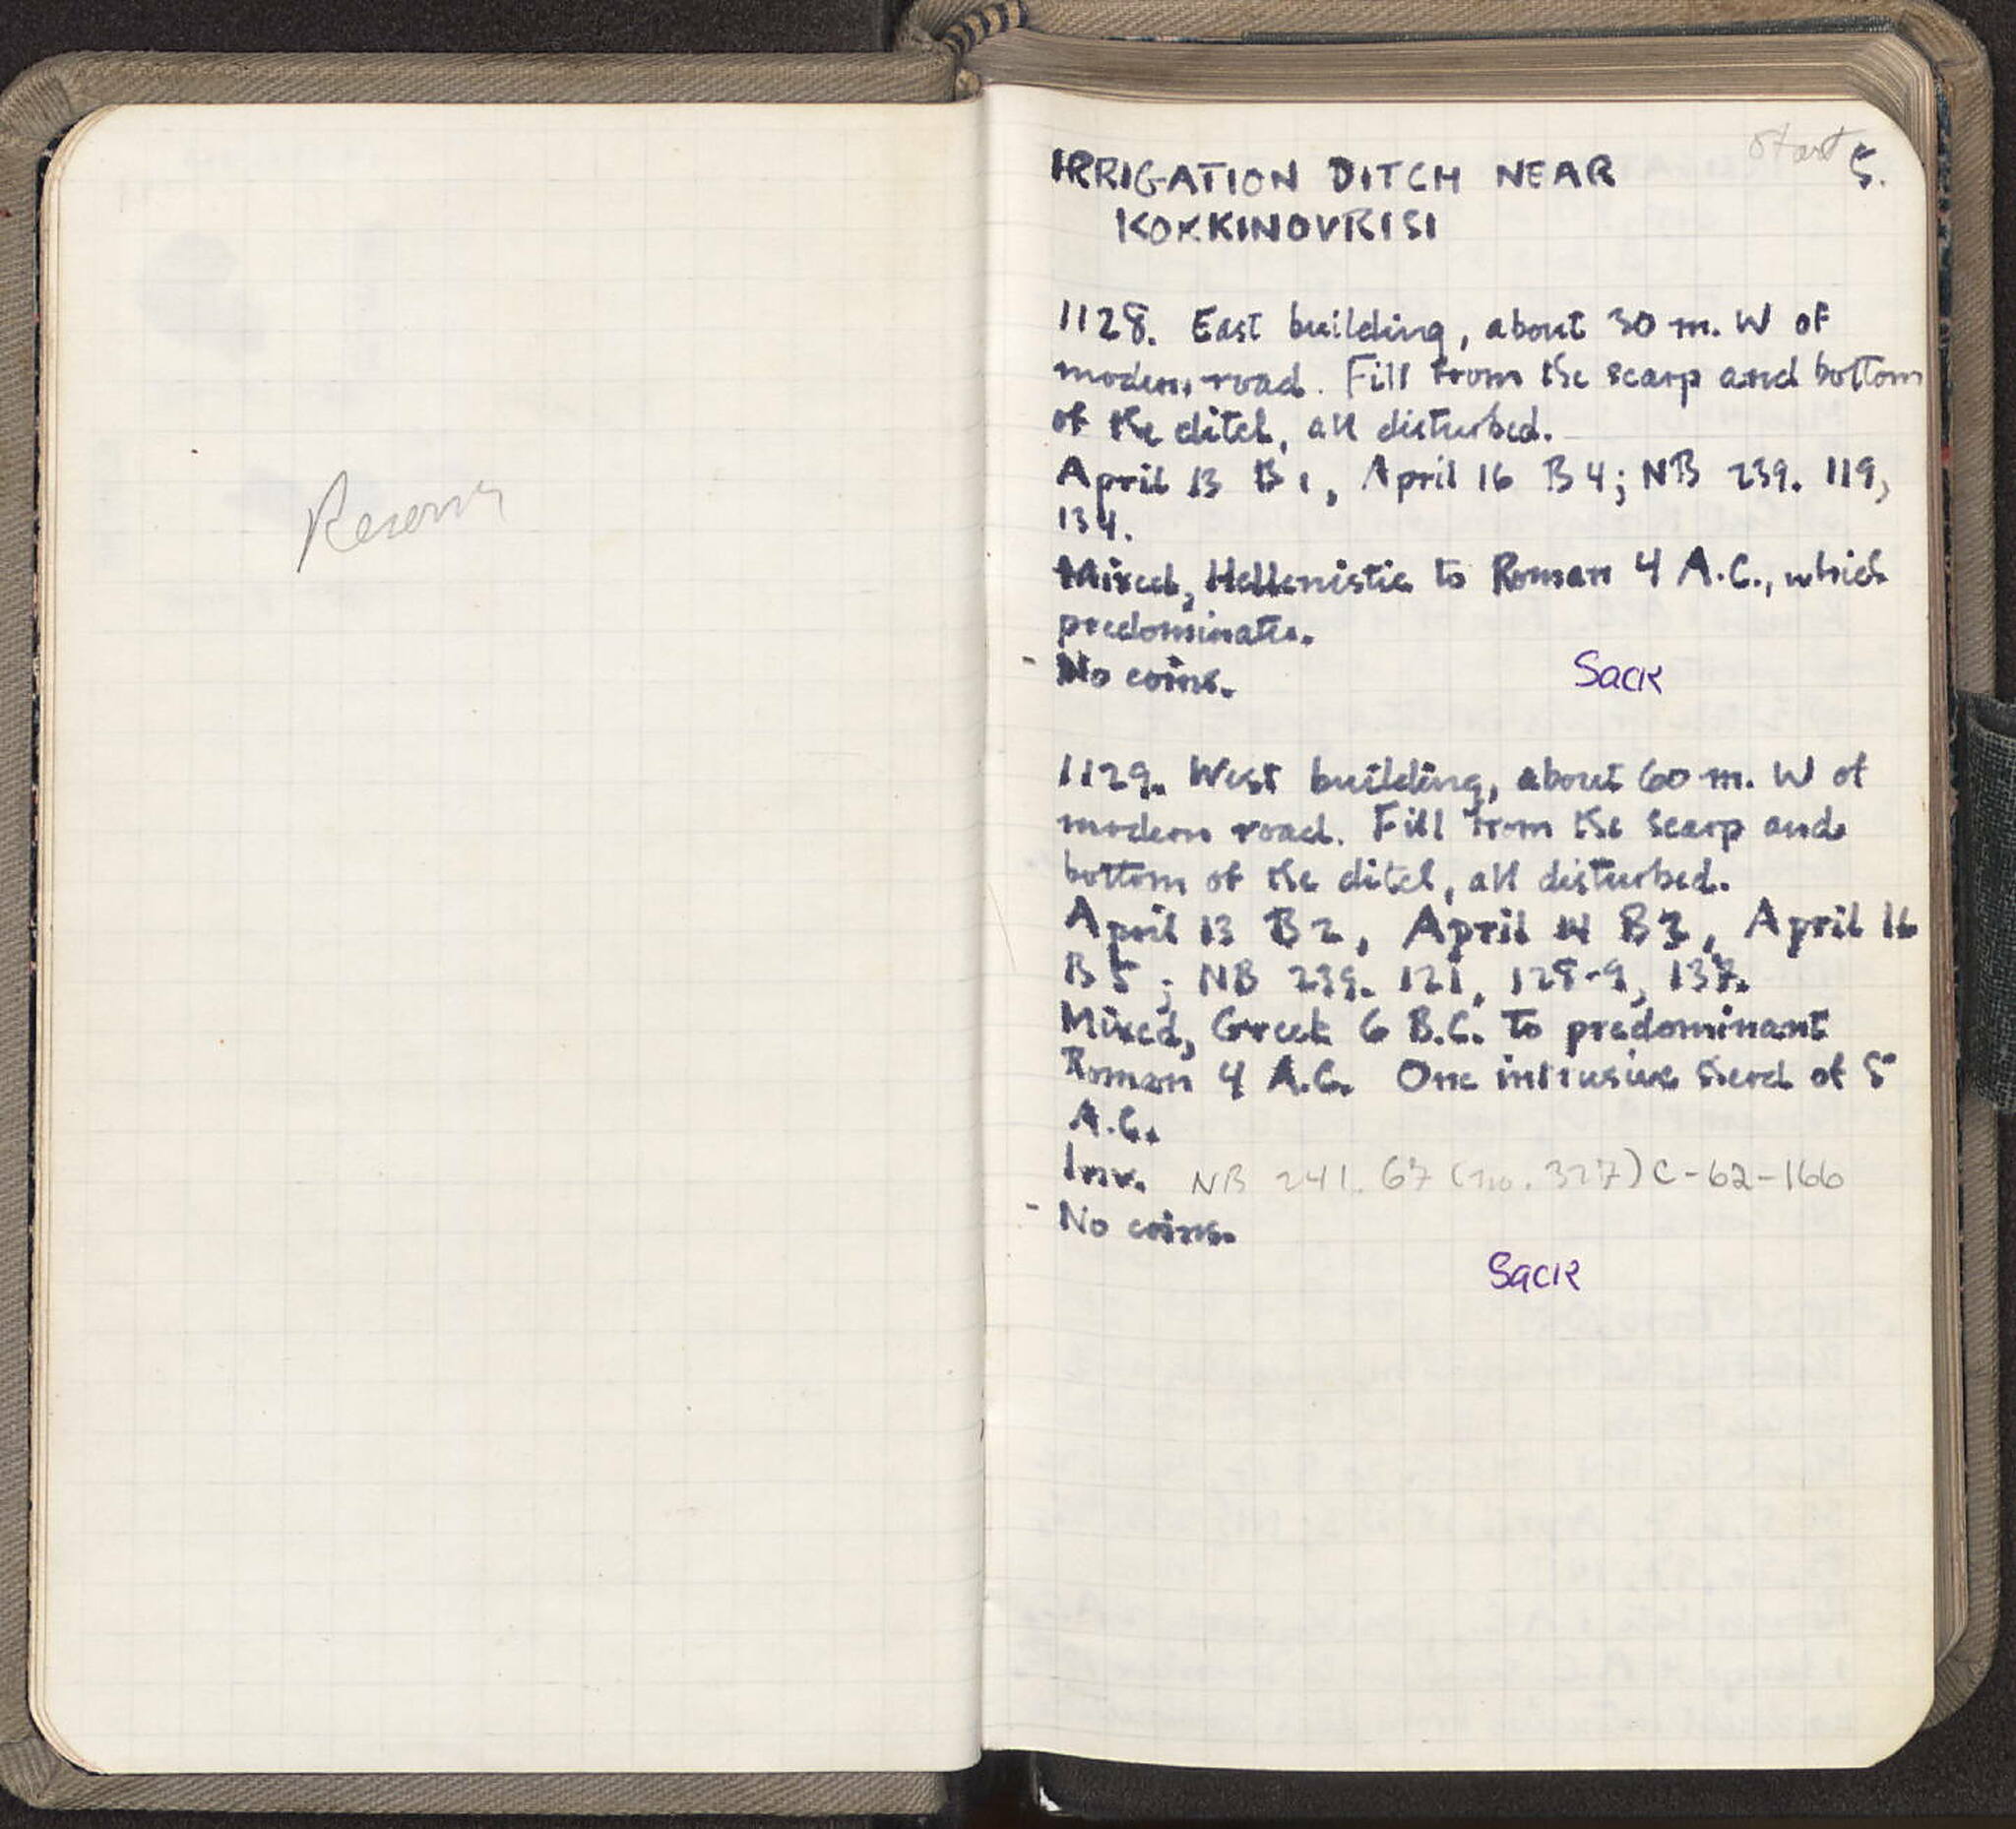 start 5.
IRRIGATION DITCH NEAR
KOKKINOVRISI
1128. East building, about 30 m. W of
modern road. Fill from the scarp and bottom
of the ditch, all disturbed.
April 13 B1, April 16 B4; NB 239. 119,
134.
Mixed, Hellenistic to Roman 4 A.C., which
predominates.
- No coins.
Sack
1129. West building, about 60 m. W of
modern road. Fill from the scarp and
bottom of the ditch, all disturbed.
April 13 B2, April 14 B3, April 16
B5; NB 239. 121, 128-9, 137.
Mixed, Greek 6 B.C. to predominant
Roman 4 A.C. One intrusive sherd of 5
A.C.
Inv. NB 241. 67 (no. 327) C-62-166
- No coins.
Sack